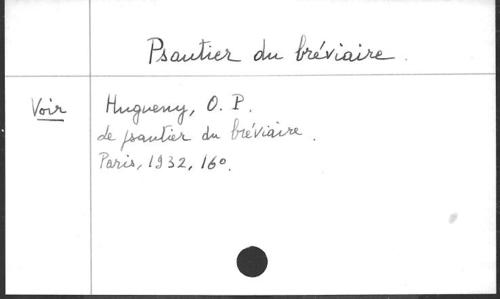 Psautier du bréviaire.
Voir Hugueny, O. P.
Le psautier du bréviaire.
Paris, 1932, 16º.